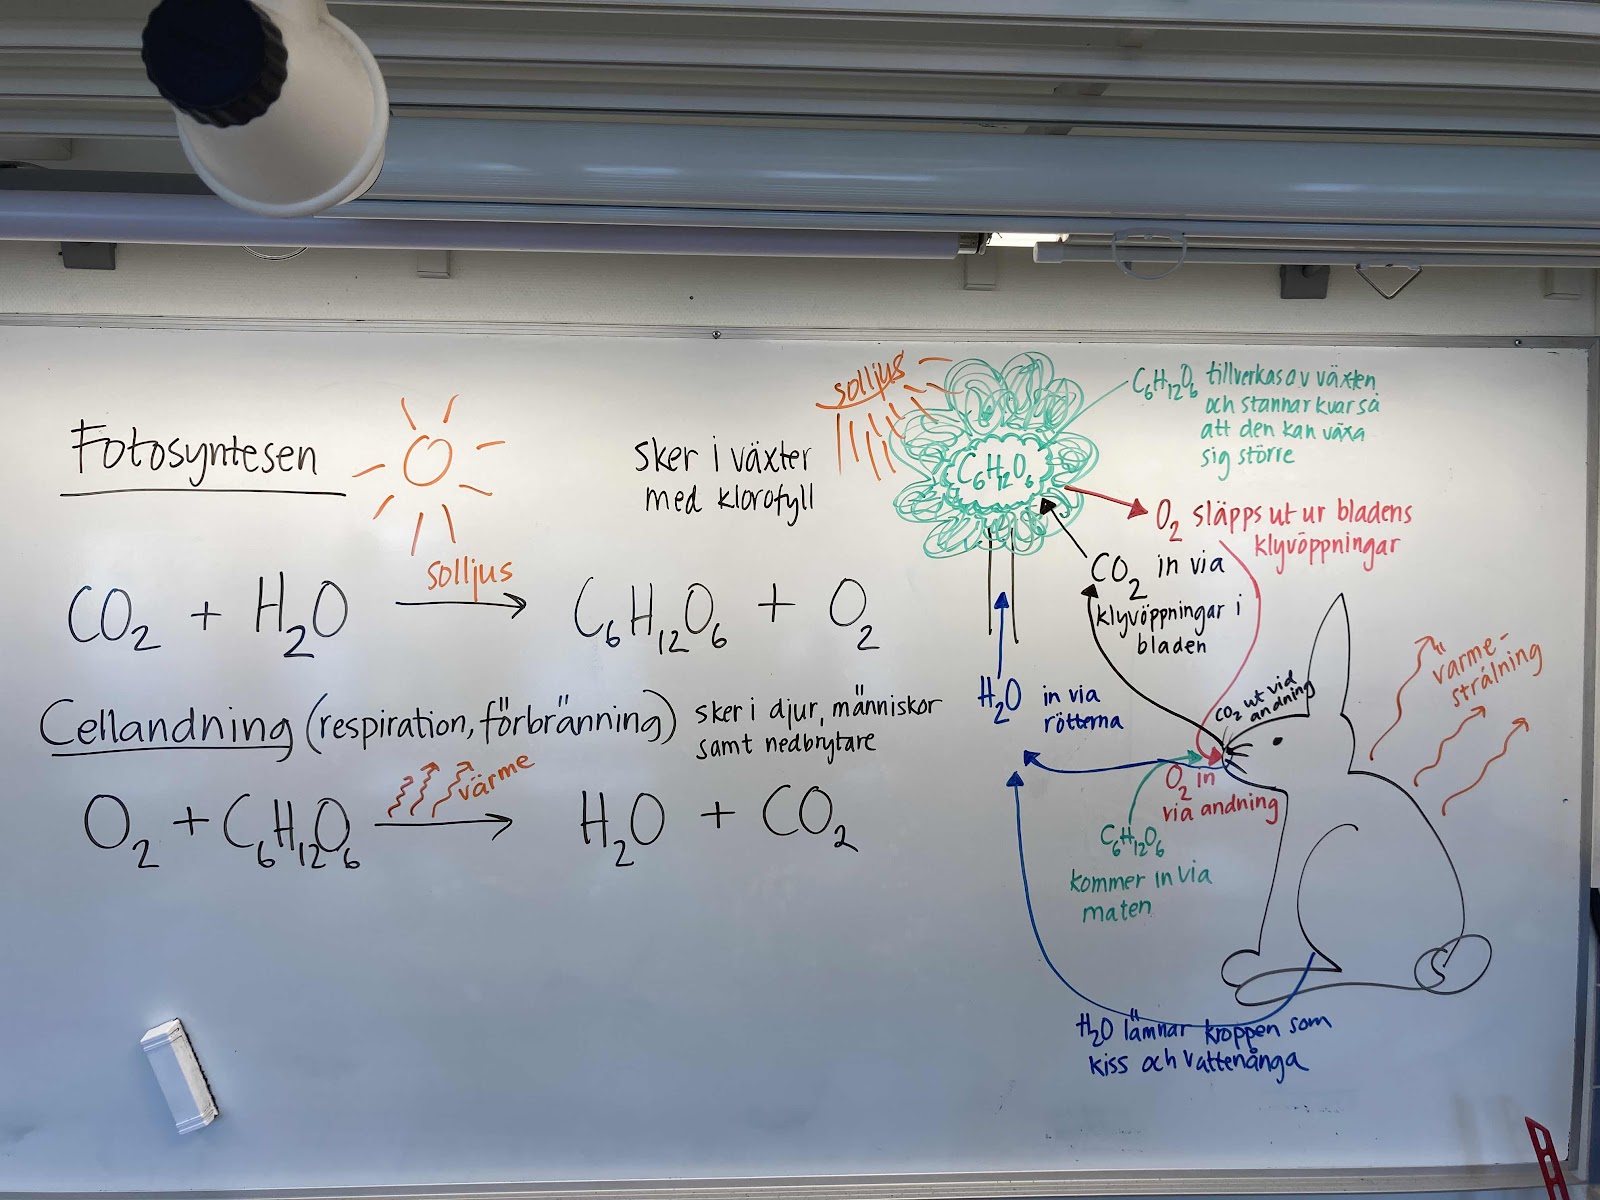 Fotosyntesen
sker i växter
med klorofyll
solljus
CO₂ + H₂O → C₆H₁₂O₆ + O₂
Cellandning (respiration, förbränning)
sker i djur, människor
samt nedbrytare
värme
O₂ + C₆H₁₂O₆ → H₂O + CO₂
solljus
C₆H₁₂O₆
C₆H₁₂O₆ tillverkas av växten
och stannar kvar så
att den kan växa
sig större
O₂ släpps ut ur bladens
klyvöppningar
CO₂ in via
klyvöppningar i
bladen
H₂O in via
rötterna
CO₂ ut vid
andning
värme-
strålning
O₂ in
via andning
C₆H₁₂O₆
kommer in via
maten
H₂O lämnar kroppen som
kiss och vattenånga